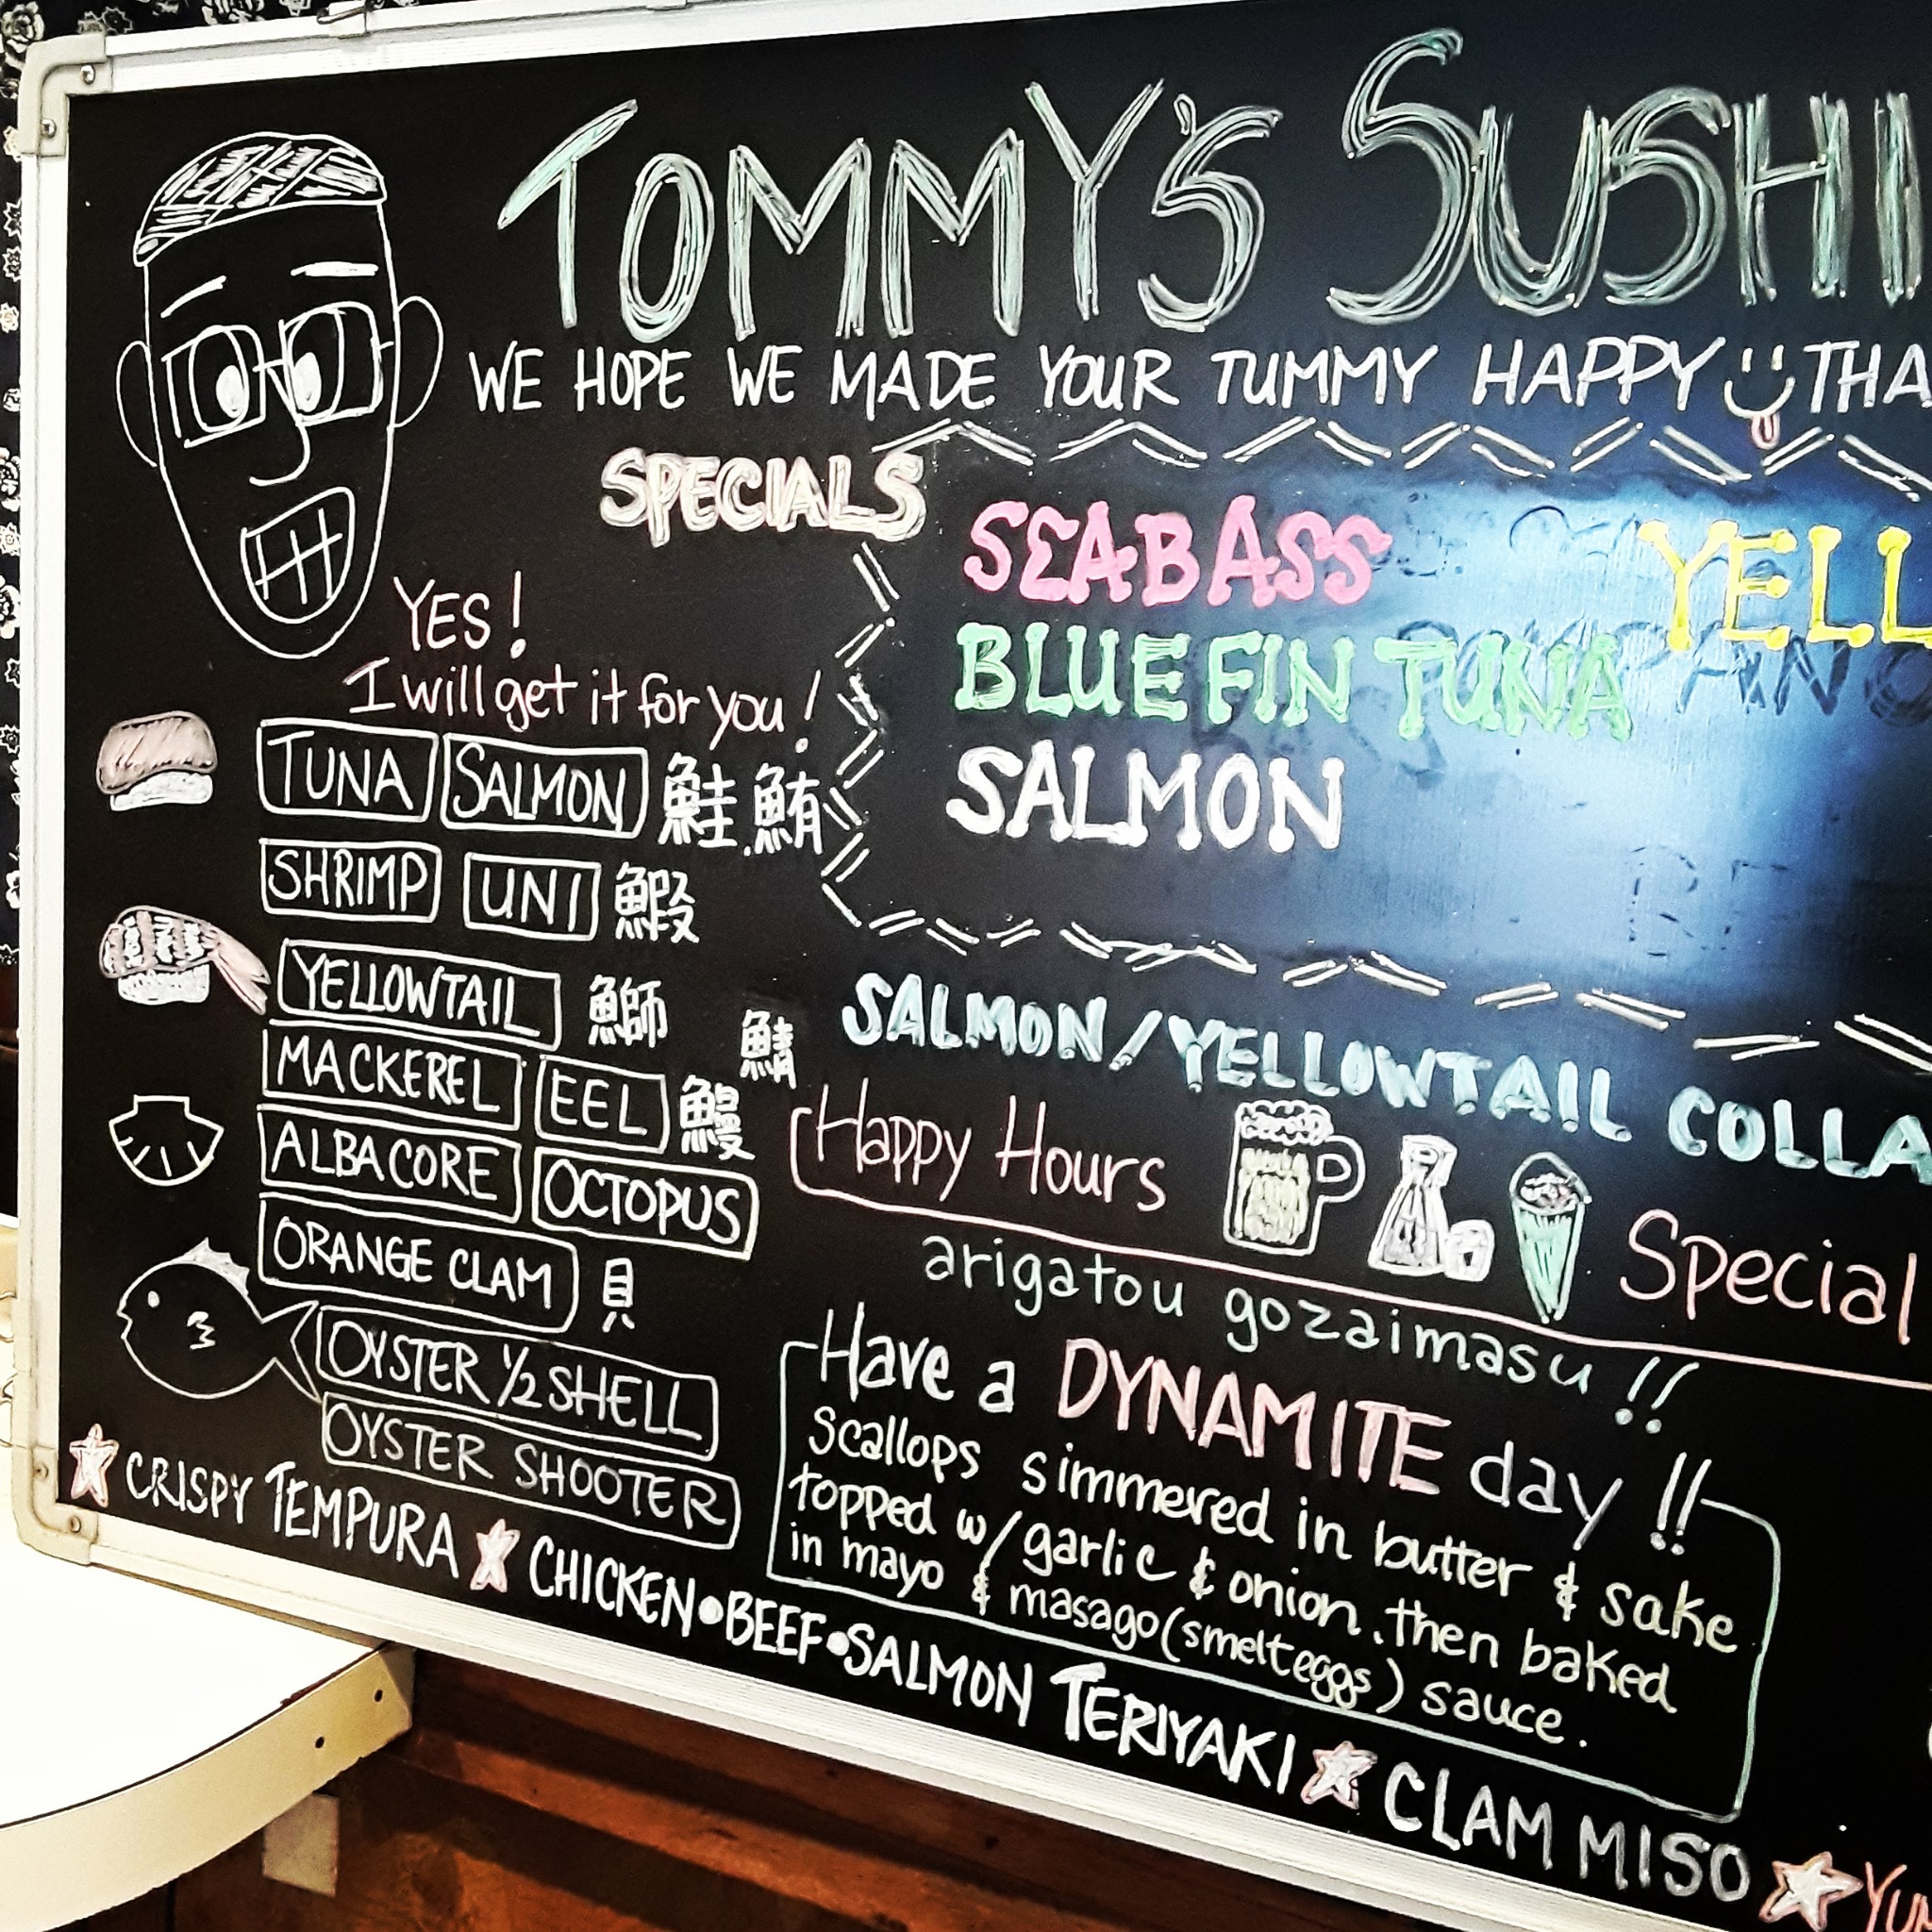 TOMMY'S SUSHI
WE HOPE WE MADE YOUR TUMMY HAPPY THA
SPECIALS
SEABASS YELL
BLUEFIN TUNA
SALMON
YES!
I will get it for you!
TUNA SALMON 鮭. 鮪
SHRIMP UNI 鰕
YELLOWTAIL 鰤
MACKEREL 鯖
EEL 鰻
ALBACORE OCTOPUS
ORANGE CLAM 貝
OYSTER 1/2 SHELL
OYSTER SHOOTER
SALMON/YELLOWTAIL COLLA
Happy Hours Special
arigatou gozaimasu!!
Have a DYNAMITE day!!
scallops simmered in butter & sake
topped w/ garlic & onion. then baked
in mayo & masago (smelt eggs) sauce.
CRISPY TEMPURA CHICKEN•BEEF•SALMON TERIYAKI CLAM MISO YUM